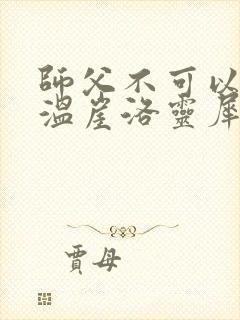 師父不可以
溫崖洛靈犀
賈母